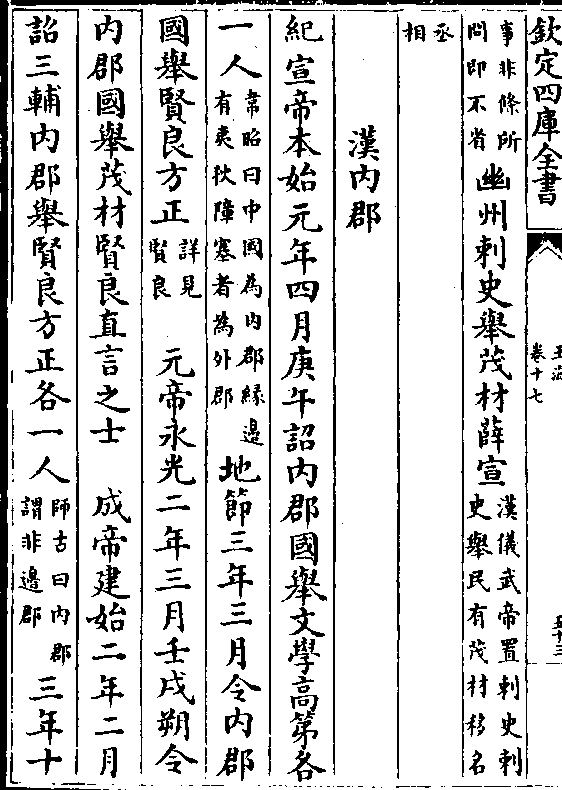 欽定四庫全書
卷十七
事非條所
問即不省
幽州刺史舉茂材薛宣
漢儀武帝置刺史刺
史舉民有茂材移名
丞
相
漢內郡
紀宣帝本始元年四月庚午詔內郡國舉文學高第各
一人
韋昭曰中國為內郡緣邊
有夷狄障塞者為外郡
地節三年三月令內郡
國舉賢良方正
詳見
賢良
元帝永光二年三月壬戌朔令
內郡國舉茂材賢良直言之士 成帝建始二年二月
詔三輔內郡舉賢良方正各一人
師古曰內郡
謂非邊郡
三年十